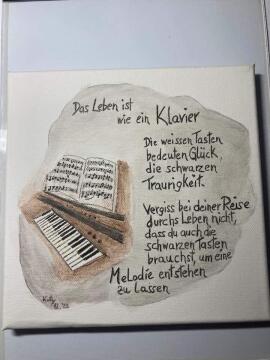 Das Leben ist
wie ein Klavier
Die weissen Tasten
bedeuten Glück,
die schwarzen
Traurigkeit.
Vergiss bei deiner Reise
durchs Leben nicht,
dass du auch die
schwarzen Tasten
brauchst, um eine
Melodie entstehen
zu lassen